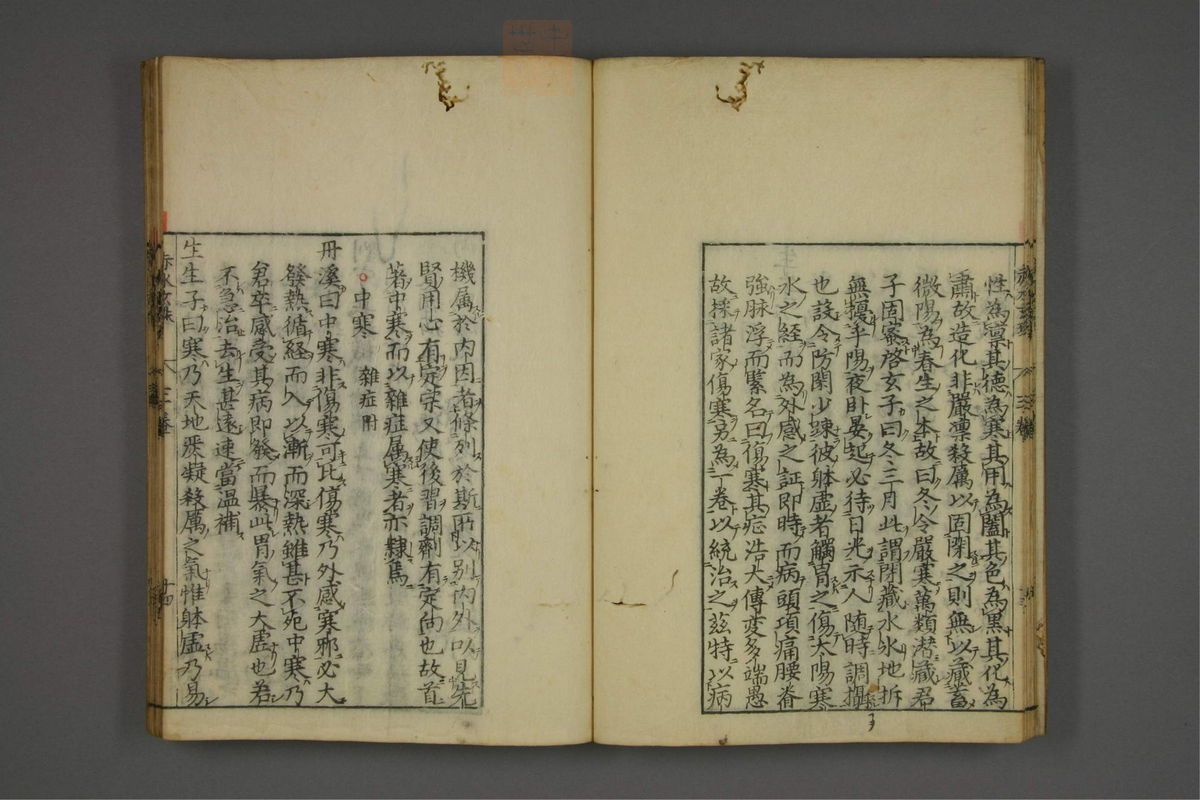 性為凛其德為寒其用為闔其色為黑其化為
肅故造化非嚴凛殺厲以固閉之則無以藏畜
微陽為春生之本故曰冬令嚴寒萬類潜藏君
子固密啓玄子曰冬三月此謂閉藏水氷地拆
無擾乎陽夜卧晏起必待日光示人随時調攝
也設令防閑少踈彼躰虛者觸冒之傷太陽寒
水之經而為外感之証即時而病頭項痛腰脊
強脉浮而緊名曰傷寒其症浩大傳変多端愚
故採諸家傷寒另為一卷以統治之茲特以病
機属於内因者條列於斯所以别内外以見先
賢用心有定宗又使後習調劑有定向也故首
著中寒而以雜症属寒者亦隸焉
中寒 雜症附
丹溪曰中寒非傷寒可比傷寒乃外感寒邪必大
發熱循経而入以漸而深熱雖甚不死中寒乃
倉卒感受其病即發而暴此胃氣之大虛也若
不急治去生甚遠速當温補
生生子曰寒乃天地嚴凝殺厲之氣惟躰虛乃易
三卷
十四